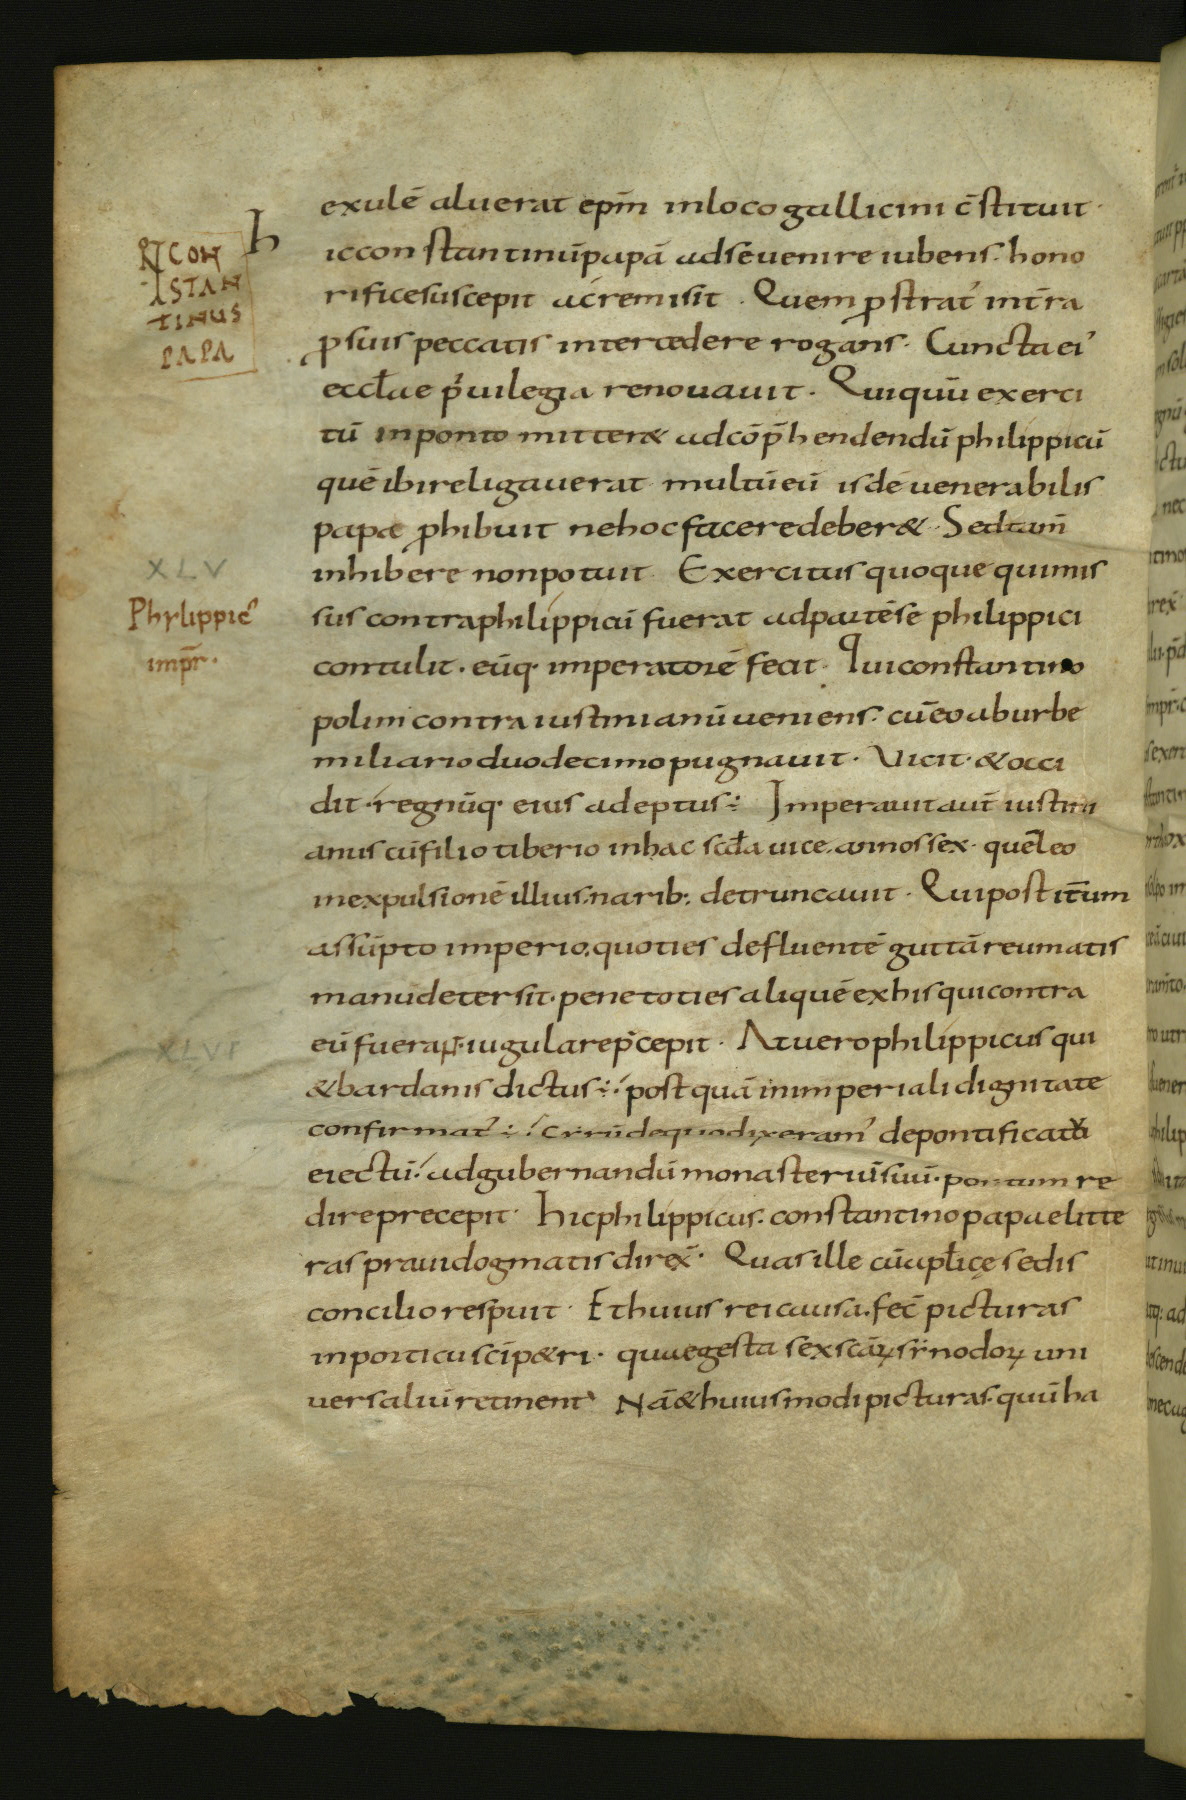 exulē aluerat epm̄ inloco gallicini c̄stituit·
hicconstantinūpapā adsēuenire iubens· hono
RT CON
STAN
TINUS
PAPA
rificesuscepit acremisit · Quem ꝓstrat' int̄ra
ꝓsuis peccatis intercedere rogans· Cuncta ei'
eccłae p'uilegia renouauit · Quiquū exerci
tū inponto mitter& adcōp̄hendendū philippicū
quē ibireligauerat multūeū isdē uenerabilis
papa ꝓhibuit nehocfaceredeber& · Sedtam̄
XLV
inhibere nonpotuit Exercitus quoque quimis
Phylippic'
sus contraphilippicū fuerat adpartēse philippici
impr̄·
contulit· eūq· imperatorē fecit· Quiconstantino
polim contra iustinianū ueniens· cūeo aburbe
miliario duodecimo pugnauit · Vicit· & occi
dit· regnūq· eius adeptus; Imperauit aut̄ iustini
anus cūfilio tiberio inhac scđa uice annos sex· quē leo
inexpulsionē illius narib; detruncauit · Qui post it̄um
assūpto imperio, quoties defluentē guttā reumatis
manudetersit· pene toties aliquē exhis quicontra
XLVI
eū fuerant· iugulare p̄cepit · At uero philippicus qui
& bardanis dictus; postquā inimperiali dignitate
confirmat'; Cyrū dequodixeram' depontificatu
eiectū· adgubernandū monasteriūsuū· pontum re
dire precepit · hicphilippicus· constantino papae litte
ras prauidogmatis direx̄· Quas ille cūapłicę sedis
concilio respuit · Et huius rei causa· fec̄ picturas
inporticu sc̄i p&ri · quaegesta sex scāꝝ synodoꝝ uni
uersaliū retinent Nā & huiusmodi picturas· quūha